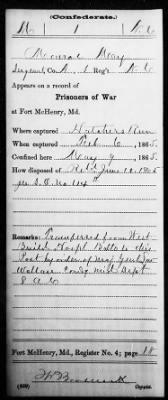 (Confederate.)
M | 1 | N.C.
Monroe
Sergeant, Co. A, 1 Reg't N.C.
Appears on a record of
Prisoners of War
at Fort McHenry, Md.
Where captured Hatchers Run
When captured Feb. 6, 1865.
Confined here May 9, 1865.
How disposed of June 10, 1865
per G.O. No 114
Remarks: Transferred from West
Build. Hospl. Balto to this
Post by order of Maj. Genl. Lew
Wallace Comdg Mid. Dept
8 A.C.
Fort McHenry, Md., Register No. 4; page 88
Copyist.